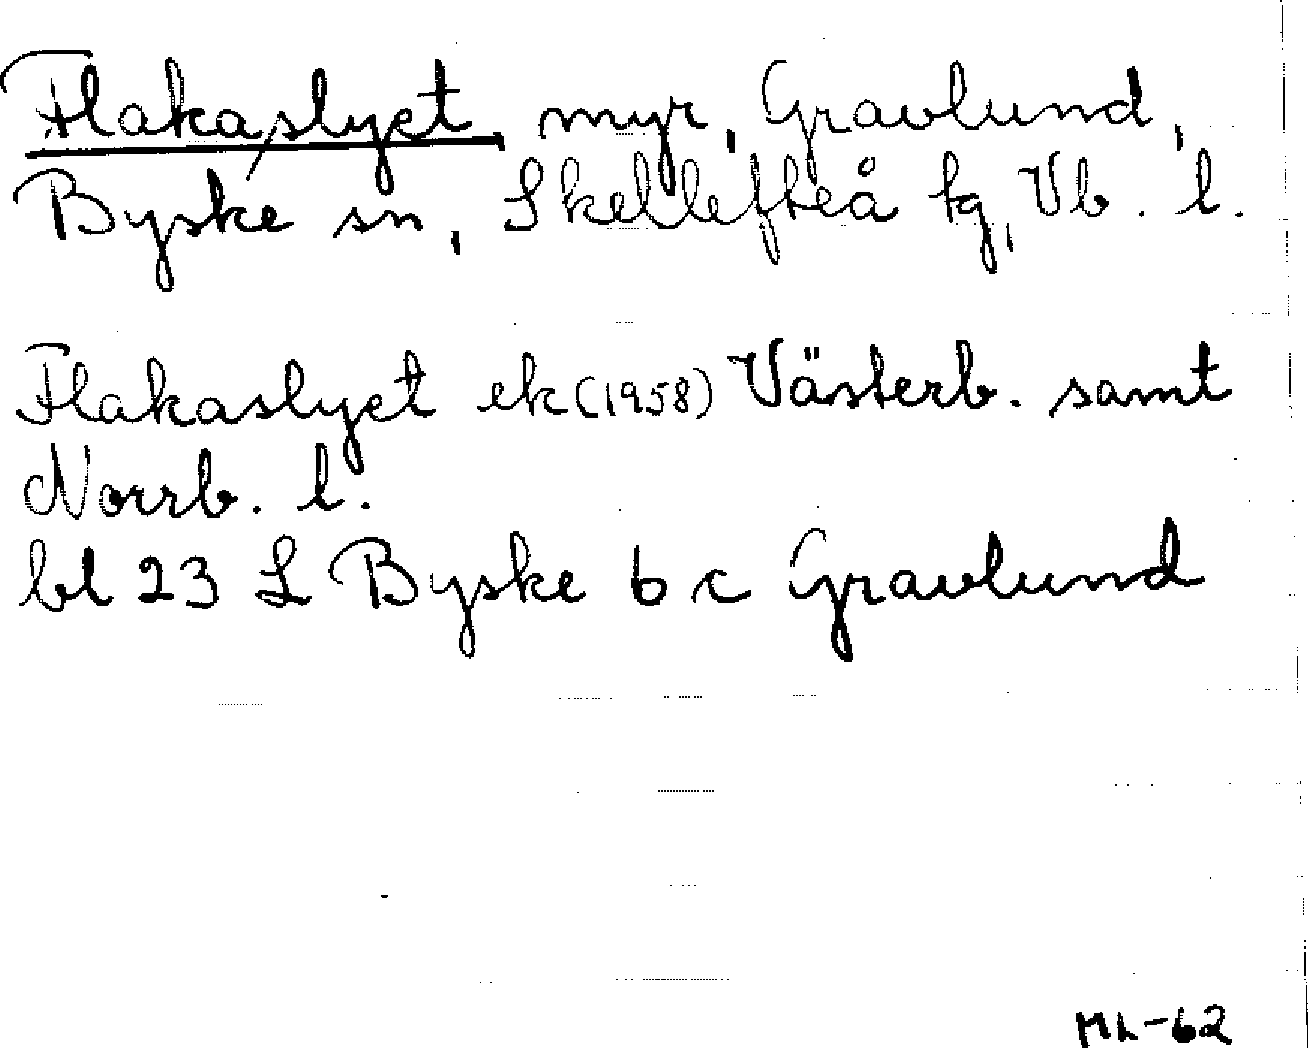 Flakaslyet, myr, Gravlund,
Byske sn, Skellefteå tg, Vb. l.
Flakaslyet ek (1958) Västerb. samt
Norrb. l.
bl 23 L Byske b c Gravlund
ML-62